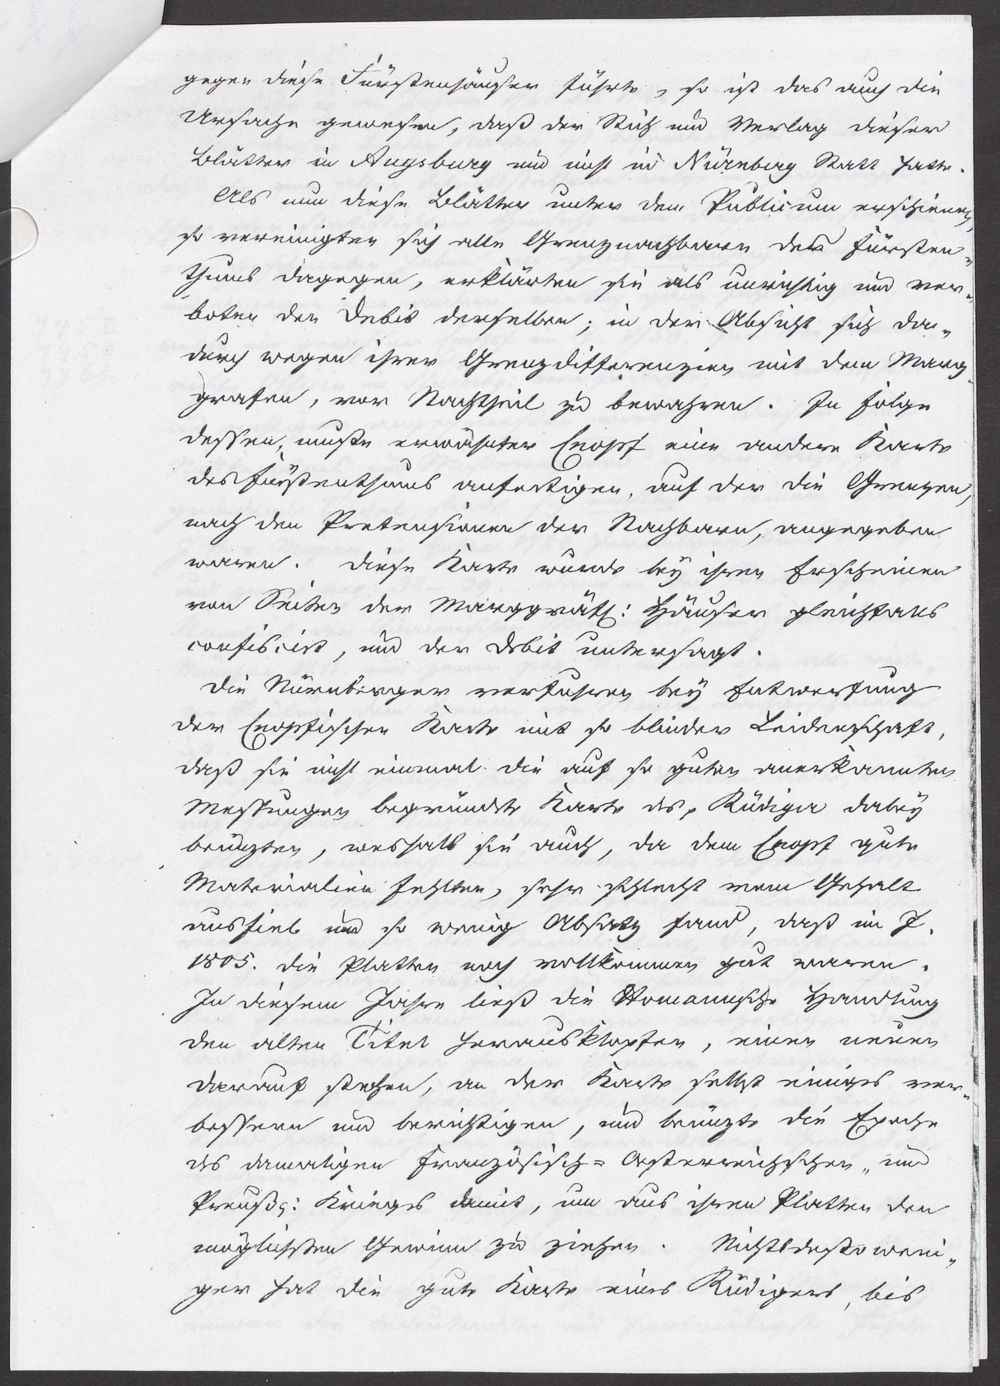 gegen diese Fürstenhäuser führte, so ist das auch die
Ursache gewesen, daß der Stich und Verlag dieser
Blätter in Augsburg und nicht in Nürnberg Statt hatte.
Als nun diese Blätter unter dem Publicum erschienen,
so vereinigten sich alle Grenznachbaren des Fürsten„
thums dagegen, erklärten sie als unrichtig und ver„
boten den Debit derselben; in der Absicht sich da„
durch wegen ihrer Grenzdifferenzien mit dem Marg„
grafen, vor Nachtheil zu bewahren. In Folge
dessen, mußte erwähnter Cnopf eine andere Karte
des Fürstenthums anfertigen, auf der die Grenzen,
nach den Pretensionen der Nachbarn, angegeben
waren. Diese Karte wurde bey ihren Erscheinen
von Seiten der Marggräfl: Häuser gleichfalls
confiscirt, und der Debit untersagt.
Die Nürnberger verfuhren bey Entwerfung
der Cnopfischen Karte mit so blinder Leidenschaft,
daß sie nicht einmal die auf so guten anerkannten
Messungen begründete Karte des Rüdiger dabey
benuzten, weshalb sie auch, da dem Cnopf gute
Materialien fehlten, sehr schlecht vom Gehalt
ausfiel und so wenig Absatz fand, daß im J.
1805. die Platten noch vollkommen gut waren.
In diesem Jahre ließ die Homannsche Handlung
den alten Titel herausklopfen, einen neuen
darauf stechen, an der Karte selbst einiges ver„
bessern und berichtigen, und benuzte die Epoche
des damaligen Französisch= Oesterreichschen „und
Preußs: Krieges damit, um aus ihren Platten den
möglichsten Gewinn zu ziehen. Nichtsdestoweni„
ger hat die gute Karte eines Rüdigers, bis